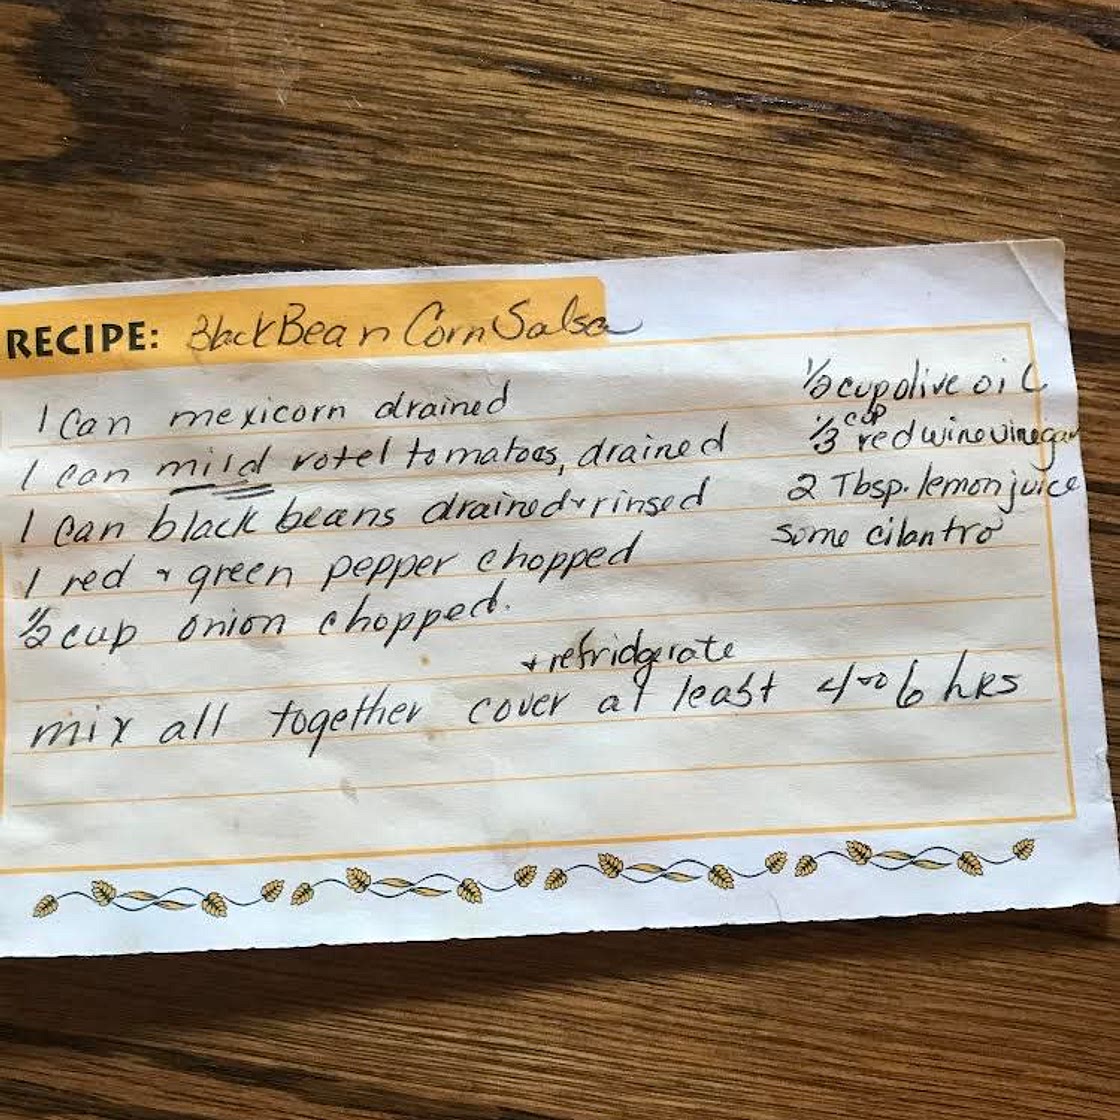 RECIPE: Black Bean Corn Salsa
1 Can mexicorn drained
1 can mild rotel tomatoes, drained
1 can black beans drained + rinsed
1 red + green pepper chopped
1/2 cup onion chopped.
1/2 cup olive oil
1/3 cup red wine vinegar
2 Tbsp. lemon juice
some cilantro
+ refridgerate
mix all together cover at least 4 to 6 hrs